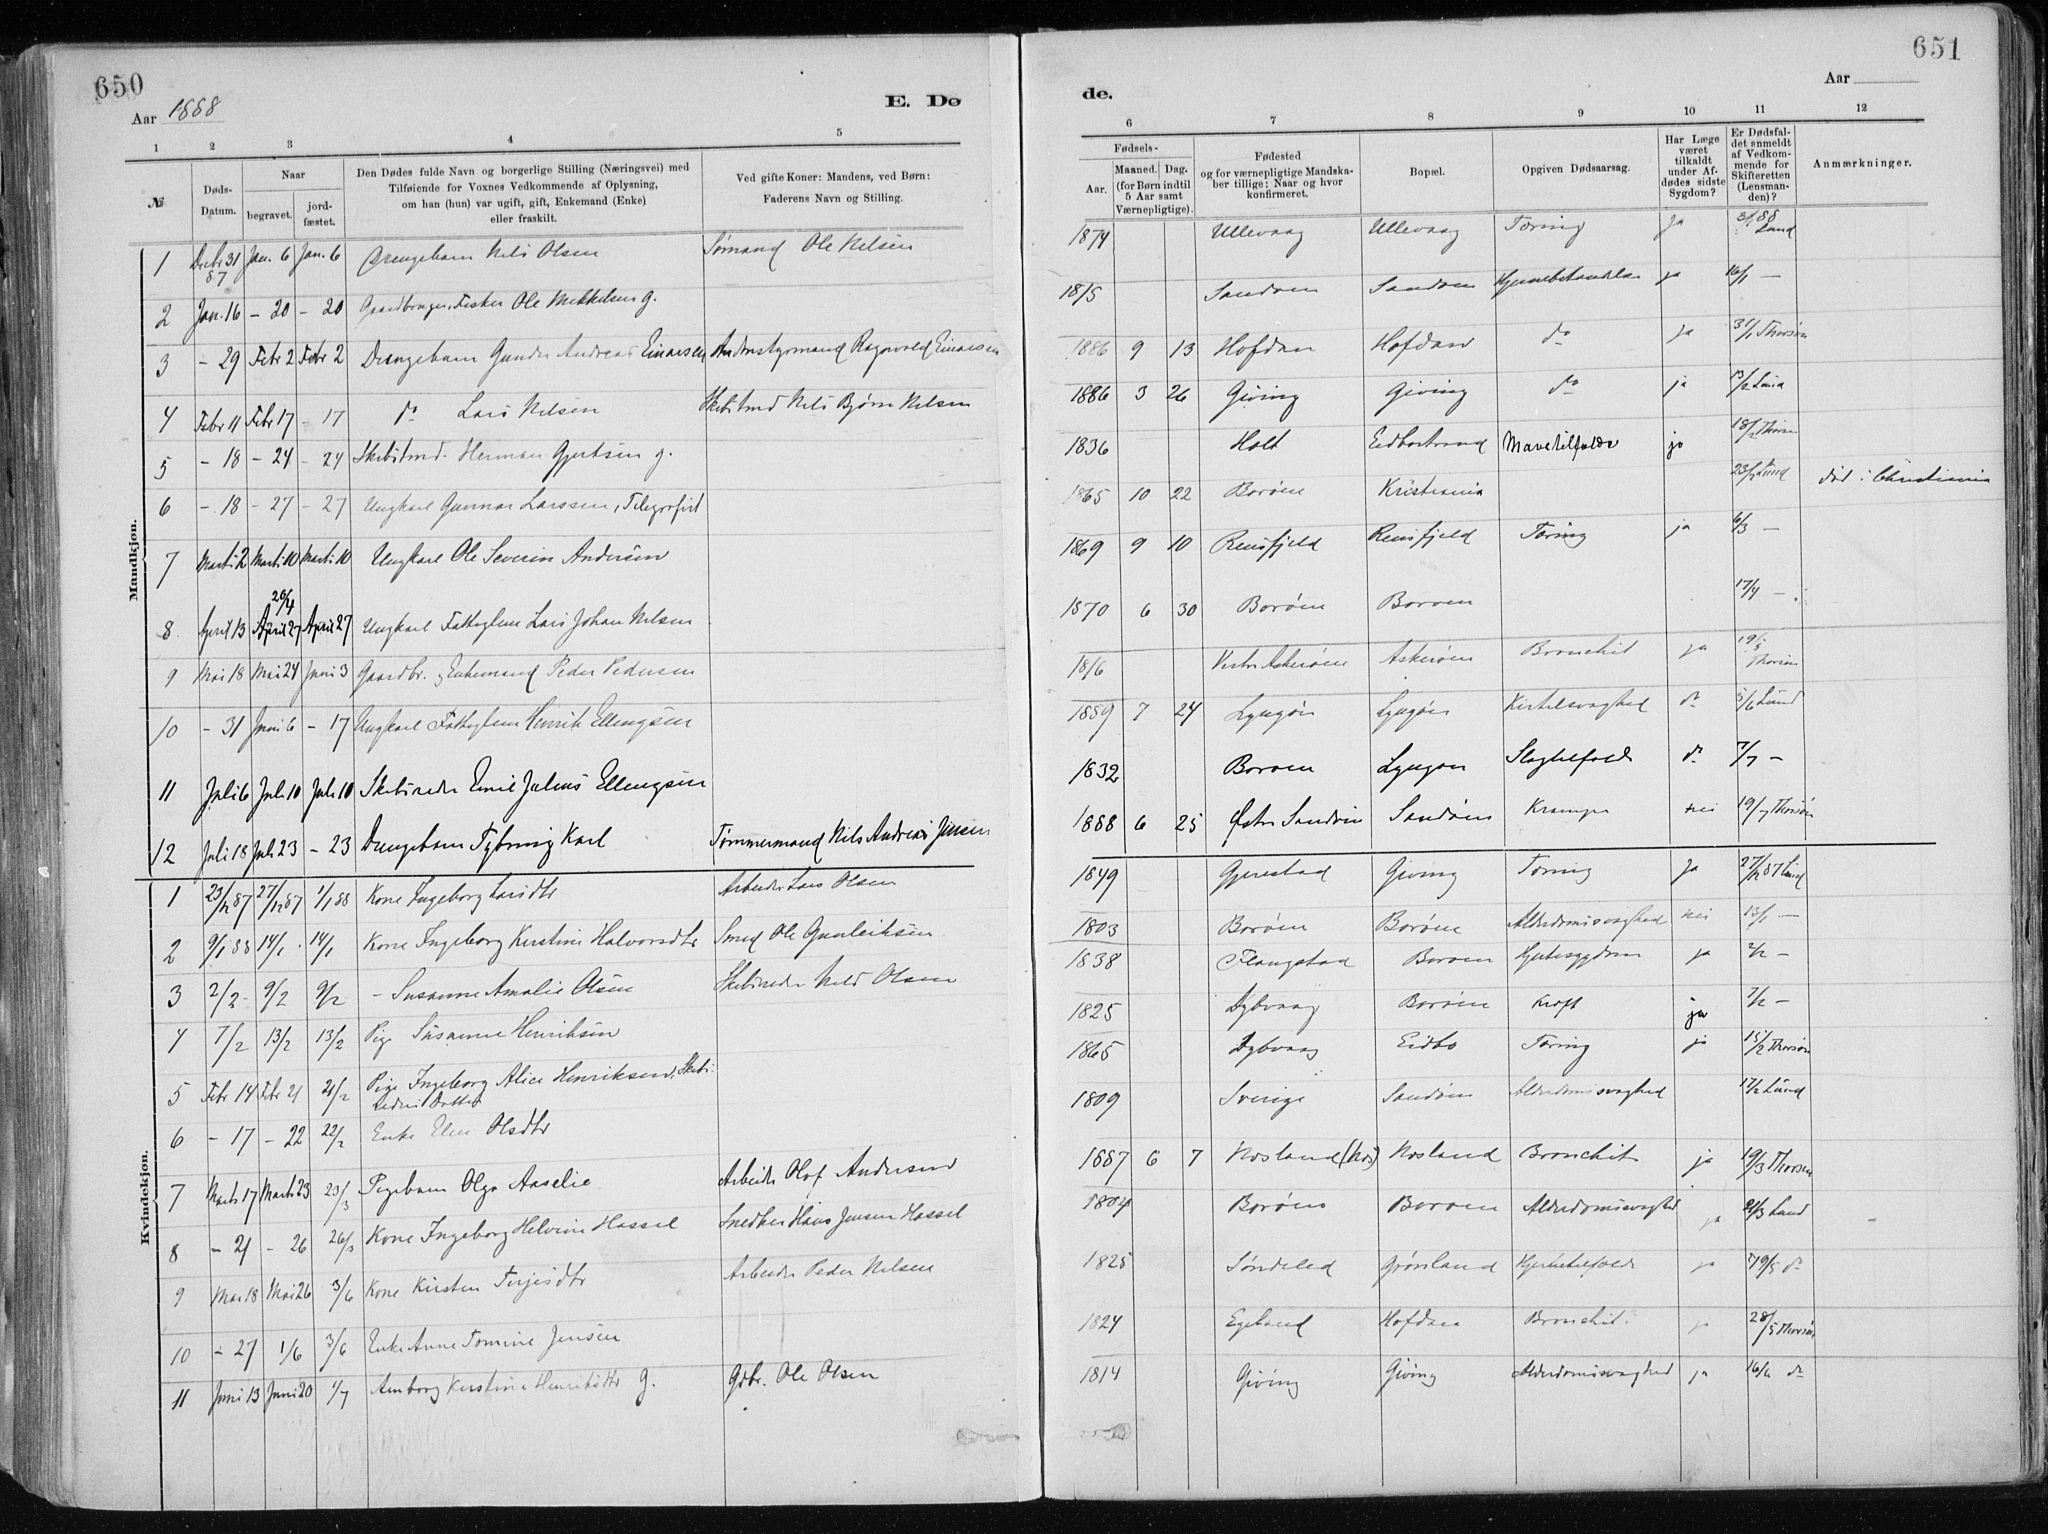 650
651
Aar 1888
E. Dø
de.
Aar
1 2 3 4 5
6 7 8 9 10 11 12
№
Døds-Datum.
Naar
begravet.
jord-fæstet.
Den Dødes fulde Navn og borgerlige Stilling (Næringsvei) med
Tilføiende for Voxnes Vedkommende af Oplysning,
om han (hun) var ugift, gift, Enkemand (Enke)
eller fraskilt.
Ved gifte Koner: Mandens, ved Børn:
Faderens Navn og Stilling.
Fødsels-
Aar.
Maaned. Dag.
(for Børn indtil
5 Aar samt
Værnepligtige).
Fødested
og for værnepligtige Mandska-
ber tillige: Naar og hvor
konfirmeret.
Bopæl.
Opgiven Dødsaarsag.
Har Læge
været
tilkaldt
under Af-
dødes sidste
Sygdom?
Er Dødsfal-
det anmeldt
af Vedkom-
mende for
Skifteretten
(Lensman-
den)?
Anmærkninger.
Mandkjøn.
1 Decbr 31 87 Jan. 6 Jan. 6 Drengebarn Nils Olsen Sømand Ole Nilsen 1874 Ullevaag Ullevaag Tæring Ja Lund
2 Jan. 16 - 20 - 20 Gaardbruger, Fisker Ole Mikkelsen g. 1815 Sandøen Sandøen ja 16/1 -
3 - 29 Febr 2 Febr 2 Drengebarn Gunder Andreas Einarsen Andenstyrmand Ragnvald Einarsen 1886 9 13 Hofdan Hofdan do ja 31/1 Thorsøn
4 Febr 11 Febr 17 - 17 do Lars Nilsen Skibstmd Nils Bjørn Nilsen 1886 3 26 Gjeving Gjeving do ja 13/2 Lund
5 - 18 - 24 - 24 Skibstmd. Herman Gjertsen g. 1836 Holt Eidbostrand Mavetilfælde ja 18/2 Thorsøn
6 - 18 - 27 - 27 Ungkarl Gunnar Larssen, Telegrafist 1865 10 22 Borøen Kristiania 23/2 Lund død i Christiania
7 Marts 2 Marts 10 Marts 10 Ungkarl Ole Severin Andersen 1869 9 10 Rensfjeld Rensfjeld Tæring ja 6/3 -
26/4
8 April 13 April 27 April 27 Ungkarl Fattiglem Lars Johan Nilsen 1870 6 30 Borøen Borøen 17/4 -
9 Mai 18 Mai 24 Juni 3 Gaardbr. Enkemand Peder Pedersen 1816 Vestre Askerøen Askerøen Bronchit ja 19/5 Thorsøn
10 - 31 Juni 6 - 17 Ungkarl Fattiglem Henrik Ellengsen 1859 7 24 Lyngøen Lyngøen Kirtelsvaghed do 5/6 Lund
11 Juli 6 Juli 10 Juli 10 Skibsreder Emil Julius Ellengsen 1832 Borøen Lyngøen Slagtilfælde do 7/7 -
12 Juli 18 Juli 23 - 23 Drengebarn Tybring Karl Tømmermand Nils Andreas Jensen 1888 6 25 Østre Sandøen Sandøen Kramper nei 19/7 Thorsøn
Kvindekjøn.
1 23/12 87 27/12 87 1/1 88 Kone Ingeborg Larsdtr Arbeider Lars Olsen 1849 Gjerestad Gjeving Tæring Ja 27/12 87 Lund
2 9/1 88 14/1 14/1 Kone Ingeborg Kirstine Halvorsdtr Smed Ole Gunleiksen 1803 Borøen Borøen Alderdomssvaghed nei 13/1 -
3 2/2 9/2 9/2 - Susanne Amalie Olsen Skibsreder Nils Olsen 1838 Flangstad Borøen Hjertesygdom ja 2/2 -
4 7/2 13/2 13/2 Pige Susanne Henriksen 1825 Dybvaag Borøen Kræft ja 7/2 -
5 Febr 14 Febr 21 21/2 Pige Ingeborg Alice Henriksen, Skibs-
reders Datter 1865 Dybvaag Eidbo Tæring ja 15/2 Thorsøn
6 - 17 - 22 22/2 Enke Elen Olsdtr 1809 Sverige Sandøen Alderdomssvaghed 17/2 Lund
7 Marts 17 Marts 23 23/3 Pigebarn Olga Aaselie Arbeider Olof Andersen 1887 6 7 Nosland Nosland Bronchit ja 19/3 Thorsøn
8 - 21 - 26 26/3 Kone Ingeborg Helvine Hassel Snedker Hans Jensen Hassel 1804 Borøen Borøen Alderdomssvaghed ja 21/3 Lund
9 Mai 18 Mai 26 3/6 Kone Kirsten Terjesdtr Arbeider Peder Nilsen 1825 Søndeled Grønland Hjertetilfælde ja 19/5 do
10 - 27 1/6 3/6 Enke Anne Tomine Jensen 1824 Egeland Hofdan Bronchit ja 28/5 Thorsøn
11 Juni 13 Juni 20 1/7 Amborg Kirstine Henriksdtr g. Gdbr. Ole Olsen 1814 Gjeving Gjeving Alderdomssvaghed ja 16/6 do